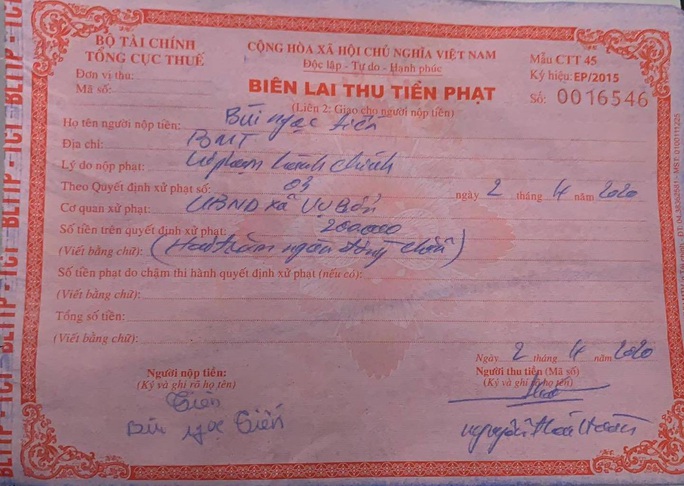 BỘ TÀI CHÍNH
TỔNG CỤC THUẾ
Đơn vị thu:
Mã số:
CỘNG HÒA XÃ HỘI CHỦ NGHĨA VIỆT NAM
Độc lập - Tự do - Hạnh phúc
BIÊN LAI THU TIỀN PHẠT
(Liên 2: Giao cho người nộp tiền)
Mẫu CTT 45
Ký hiệu: EP/2015
Số: 0016546
Họ tên người nộp tiền: Bùi ngọc tiến
Địa chỉ: BMT
Lý do nộp phạt: Vi phạm hành chính
Theo Quyết định xử phạt số: 03 ngày 2 tháng 4 năm 2020
Cơ quan xử phạt: UBND xã Vụ Bổn
Số tiền trên quyết định xử phạt: 200000
(Viết bằng chữ): (Hai trăm ngàn đồng chẵn)
Số tiền phạt do chậm thi hành quyết định xử phạt (nếu có):
(Viết bằng chữ):
Tổng số tiền:
(Viết bằng chữ):
Ngày 2 tháng 4 năm 2020
Người nộp tiền:
(Ký và ghi rõ họ tên)
Tiến
Bùi ngọc Tiến
Người thu tiền (Mã số)
(Ký và ghi rõ họ tên)
BLTTP - TCT - BLTTP - TCT - BLTTP - TCT